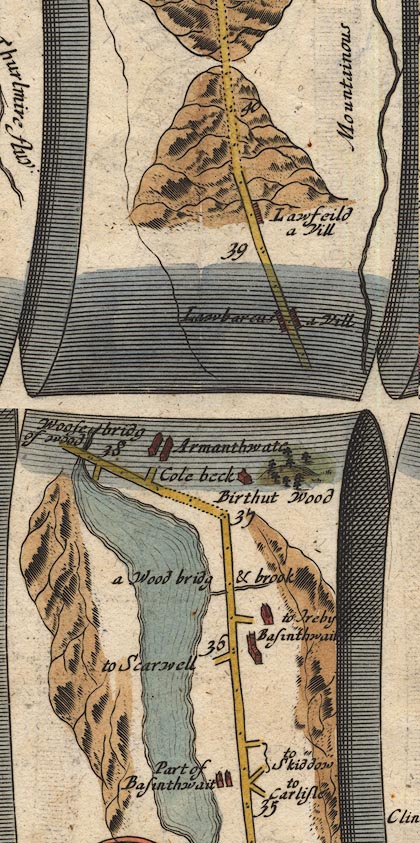 Thurlmire flu:
Mountainous
40
Lawfeild
a Vill
39
a Vill
Woosey bridg
of wood
38
Armanthwate
Cole beck
Birthut Wood
37
a Wood bridg & brook
to Ireby
Basinthwait
36
to Scarwell
to
Skiddow
Part of
Basinthwait
to
Carlisle
35
Clin